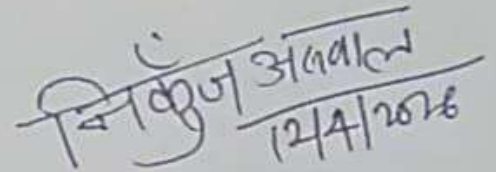 निकुँज अग्रवाल
12/4/2026